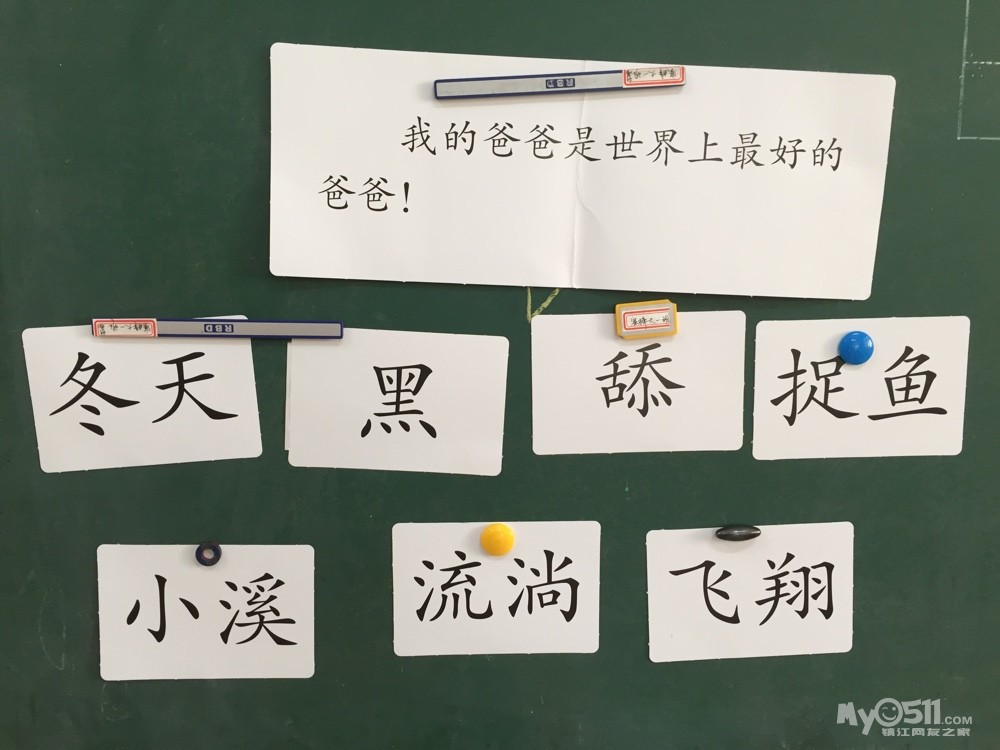 我的爸爸是世界上最好的
爸爸!
冬天
黑
舔
捉鱼
小溪
流淌
飞翔
RBD
RBD
My0511.COM
镇江网友之家